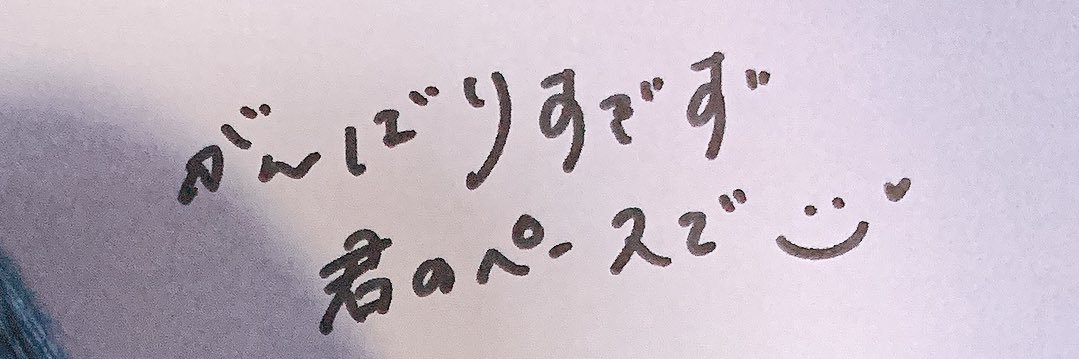 がんばりすぎず
君のペースで